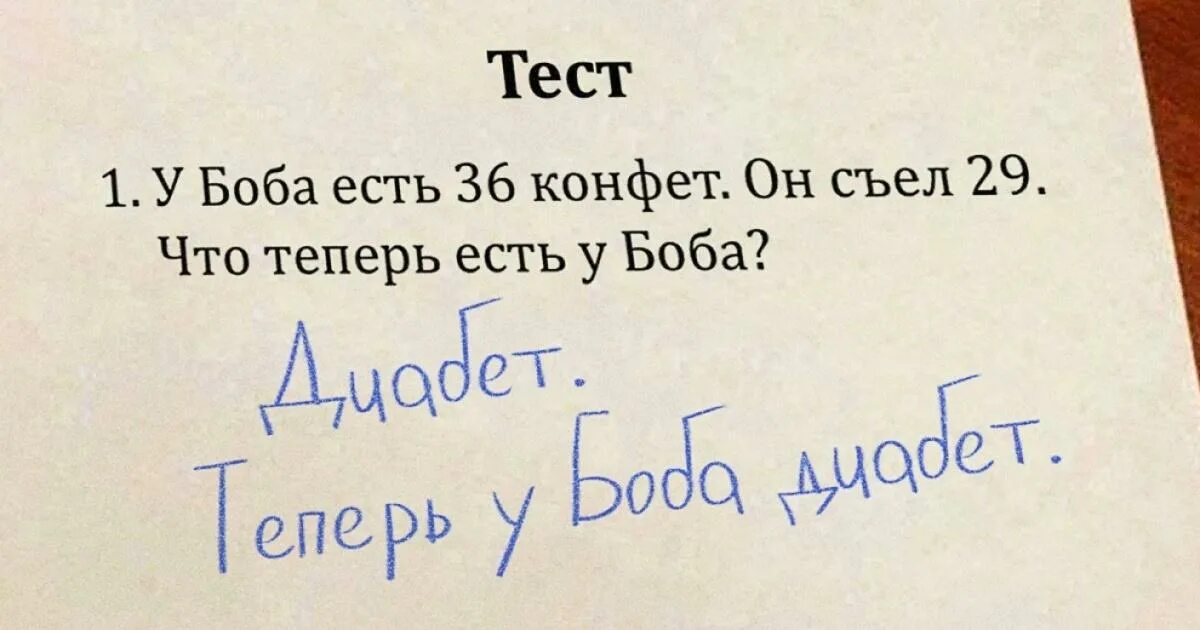 Тест
1. У Боба есть 36 конфет. Он съел 29.
Что теперь есть у Боба?
Диабет.
Теперь у Боба диабет.